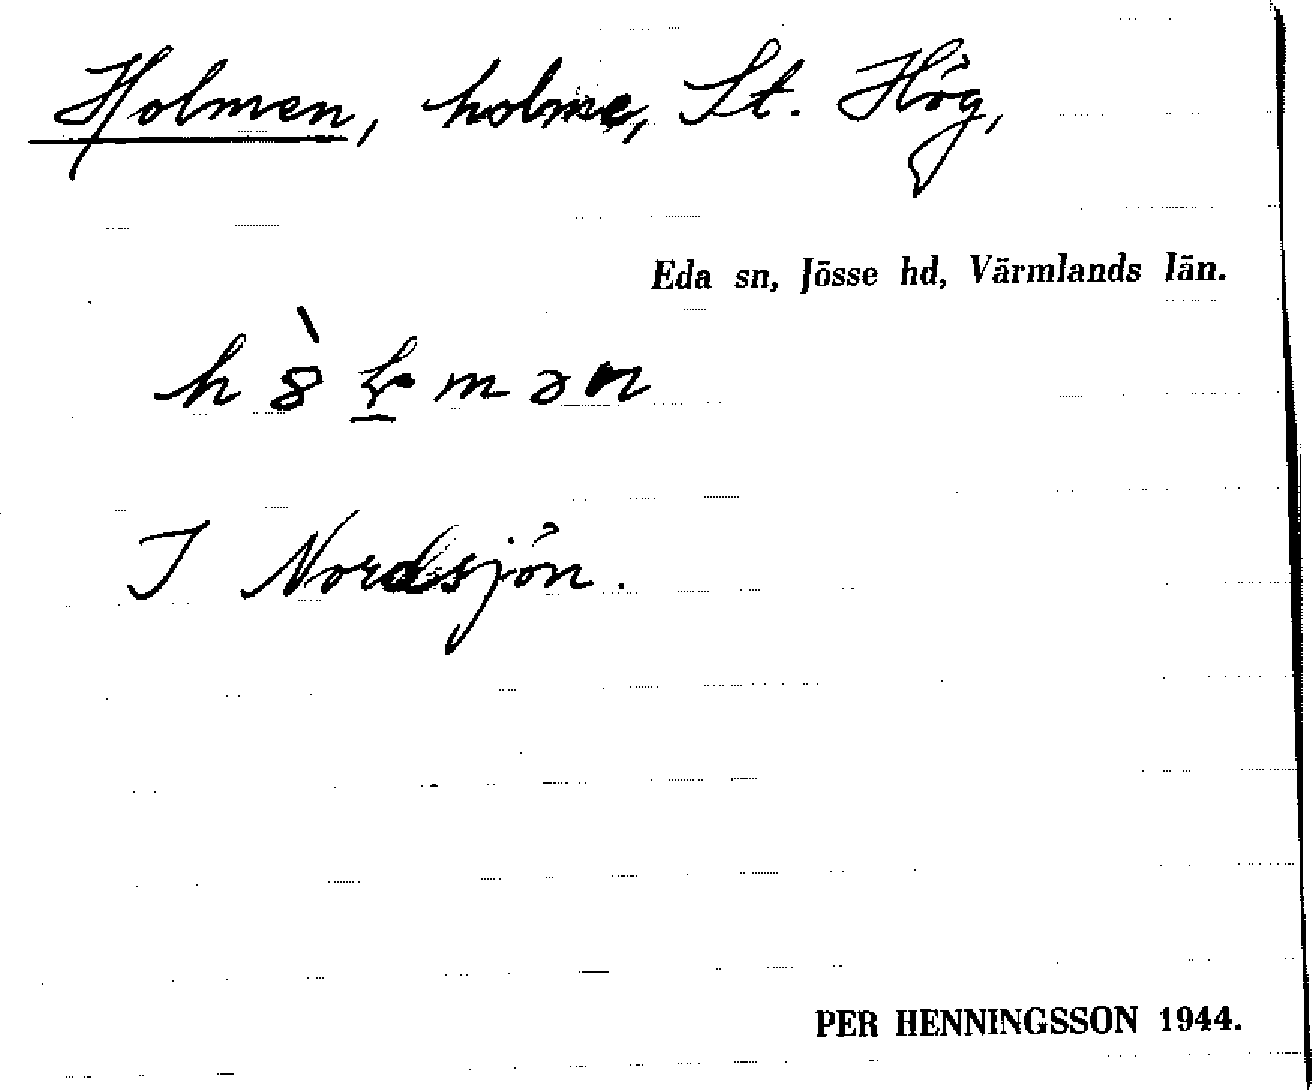 Holmen, holme, St. Hög,
Eda sn, Jösse hd, Värmlands län.
I Nordsjön.
PER HENNINGSSON 1944.